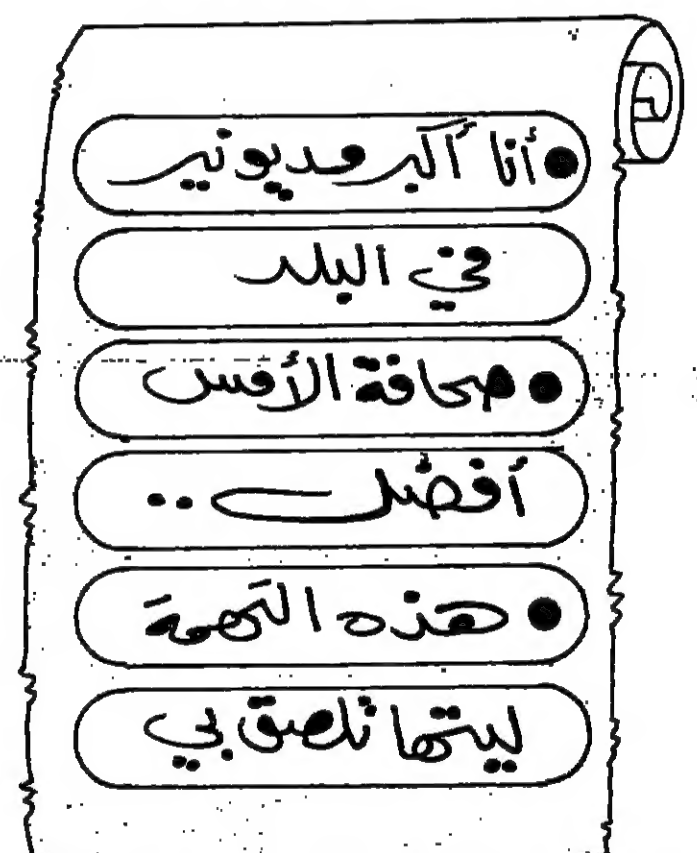 ● أنا أكبر مديونير
في البلد
● صحافة الأمس
أفضل ..
● هذه التهمة
ليتها تلصق بي